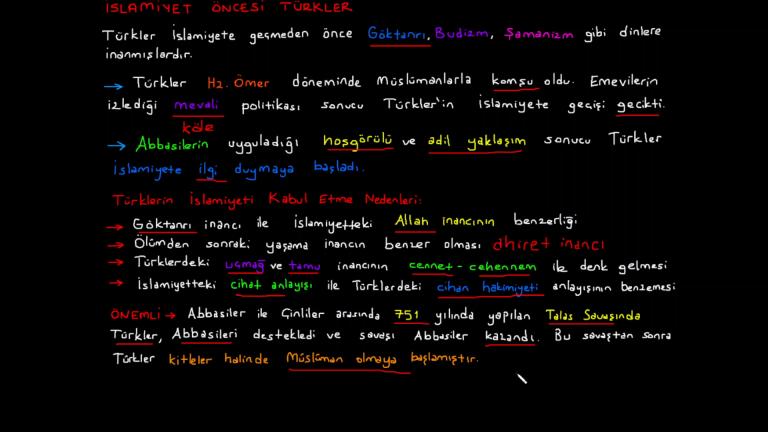 İSLAMİYET ÖNCESİ TÜRKLER
Türkler İslamiyete geçmeden önce Göktanrı, Budizm, Şamanizm gibi dinlere
inanmışlardır.
→ Türkler Hz. Ömer döneminde Müslümanlarla komşu oldu. Emevilerin
izlediği mevali politikası sonucu Türkler'in İslamiyete geçişi gecikti.
köle
→ Abbasilerin uyguladığı hoşgörülü ve adil yaklaşım sonucu Türkler
İslamiyete ilgi duymaya başladı.
Türklerin İslamiyeti Kabul Etme Nedenleri:
→ Göktanrı inancı ile İslamiyetteki Allah inancının benzerliği
→ Ölümden sonraki yaşama inancın benzer olması ahiret inancı
→ Türklerdeki uçmağ ve tamu inancının cennet - cehennem ile denk gelmesi
→ İslamiyetteki cihat anlayışı ile Türklerdeki cihan hakimiyeti anlayışının benzemesi
ÖNEMLİ → Abbasiler ile Çinliler arasında 751 yılında yapılan Talas Savaşında
Türkler, Abbasileri destekledi ve savaşı Abbasiler kazandı. Bu savaştan sonra
Türkler kitleler halinde Müslüman olmaya başlamıştır.